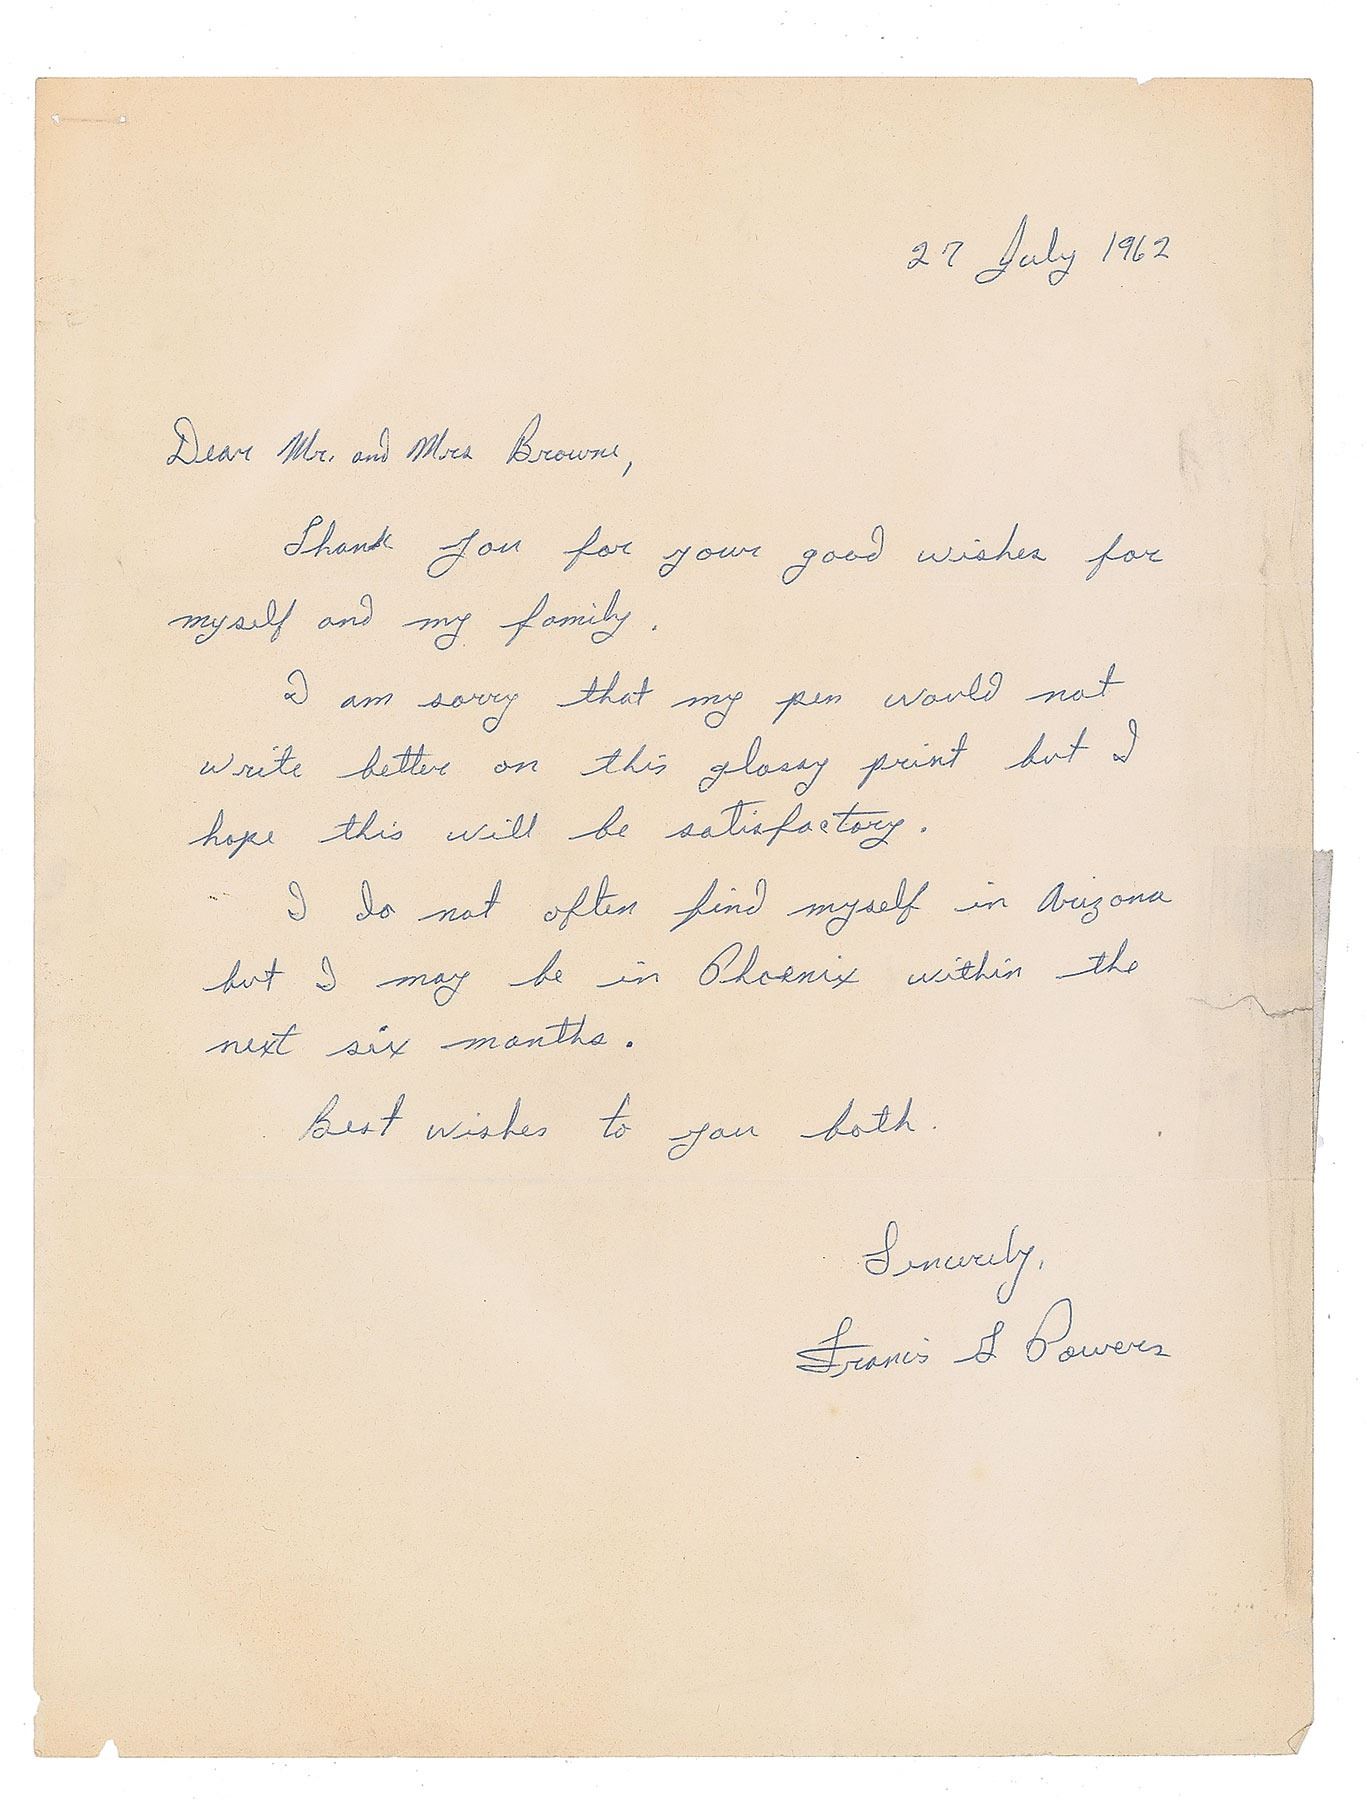 27 July 1962
Dear Mr. and Mrs Browne,
Thank you for your good wishes for
myself and my family.
I am sorry that my pen would not
write better on this glossy print but I
hope this will be satisfactory.
I do not often find myself in Arizona
but I may be in Phoenix within the
next six months.
Best wishes to you both.
Sincerely,
Francis G Powers